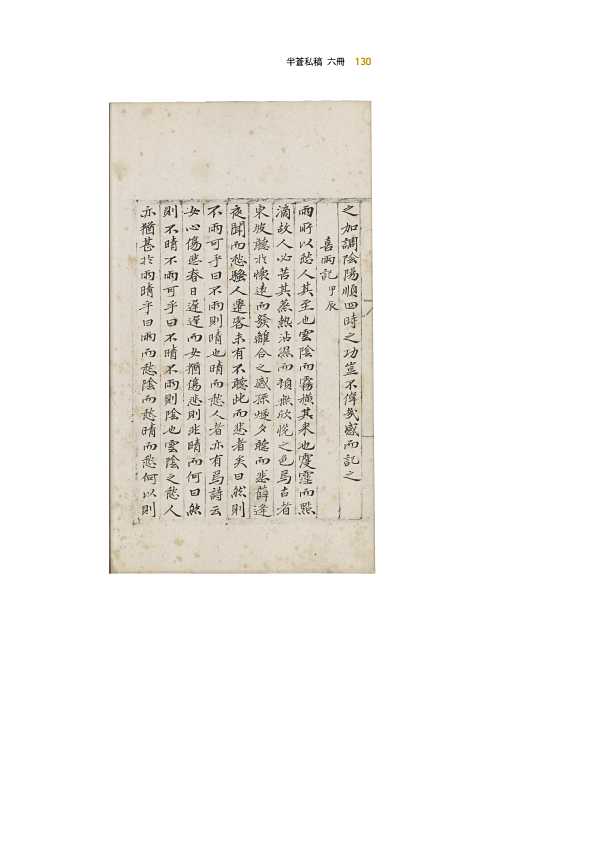 半蒼私稿 六冊 130
之加調陰陽順四時之功豈不偉哉感而記之
喜雨記 甲辰
雨所以愁人其至也雲陰而霧橫其來也霎霪而點
滴故人必苦其蒸熱沾濕而頓無欣悅之色焉古者
東坡聽於懷遠而發離合之感孫燧夕聽而悲薛逢
夜聞而愁騷人遷客未有不聽此而悲者矣曰然則
不雨可乎曰不雨則晴也晴而愁人者亦有焉詩云
女心傷悲春日遲遲而女猶傷悲則非晴而何曰然
則不晴不雨可乎曰不晴不雨則陰也雲陰之愁人
亦猶甚於雨晴乎曰雨而愁陰而愁晴而愁何以則